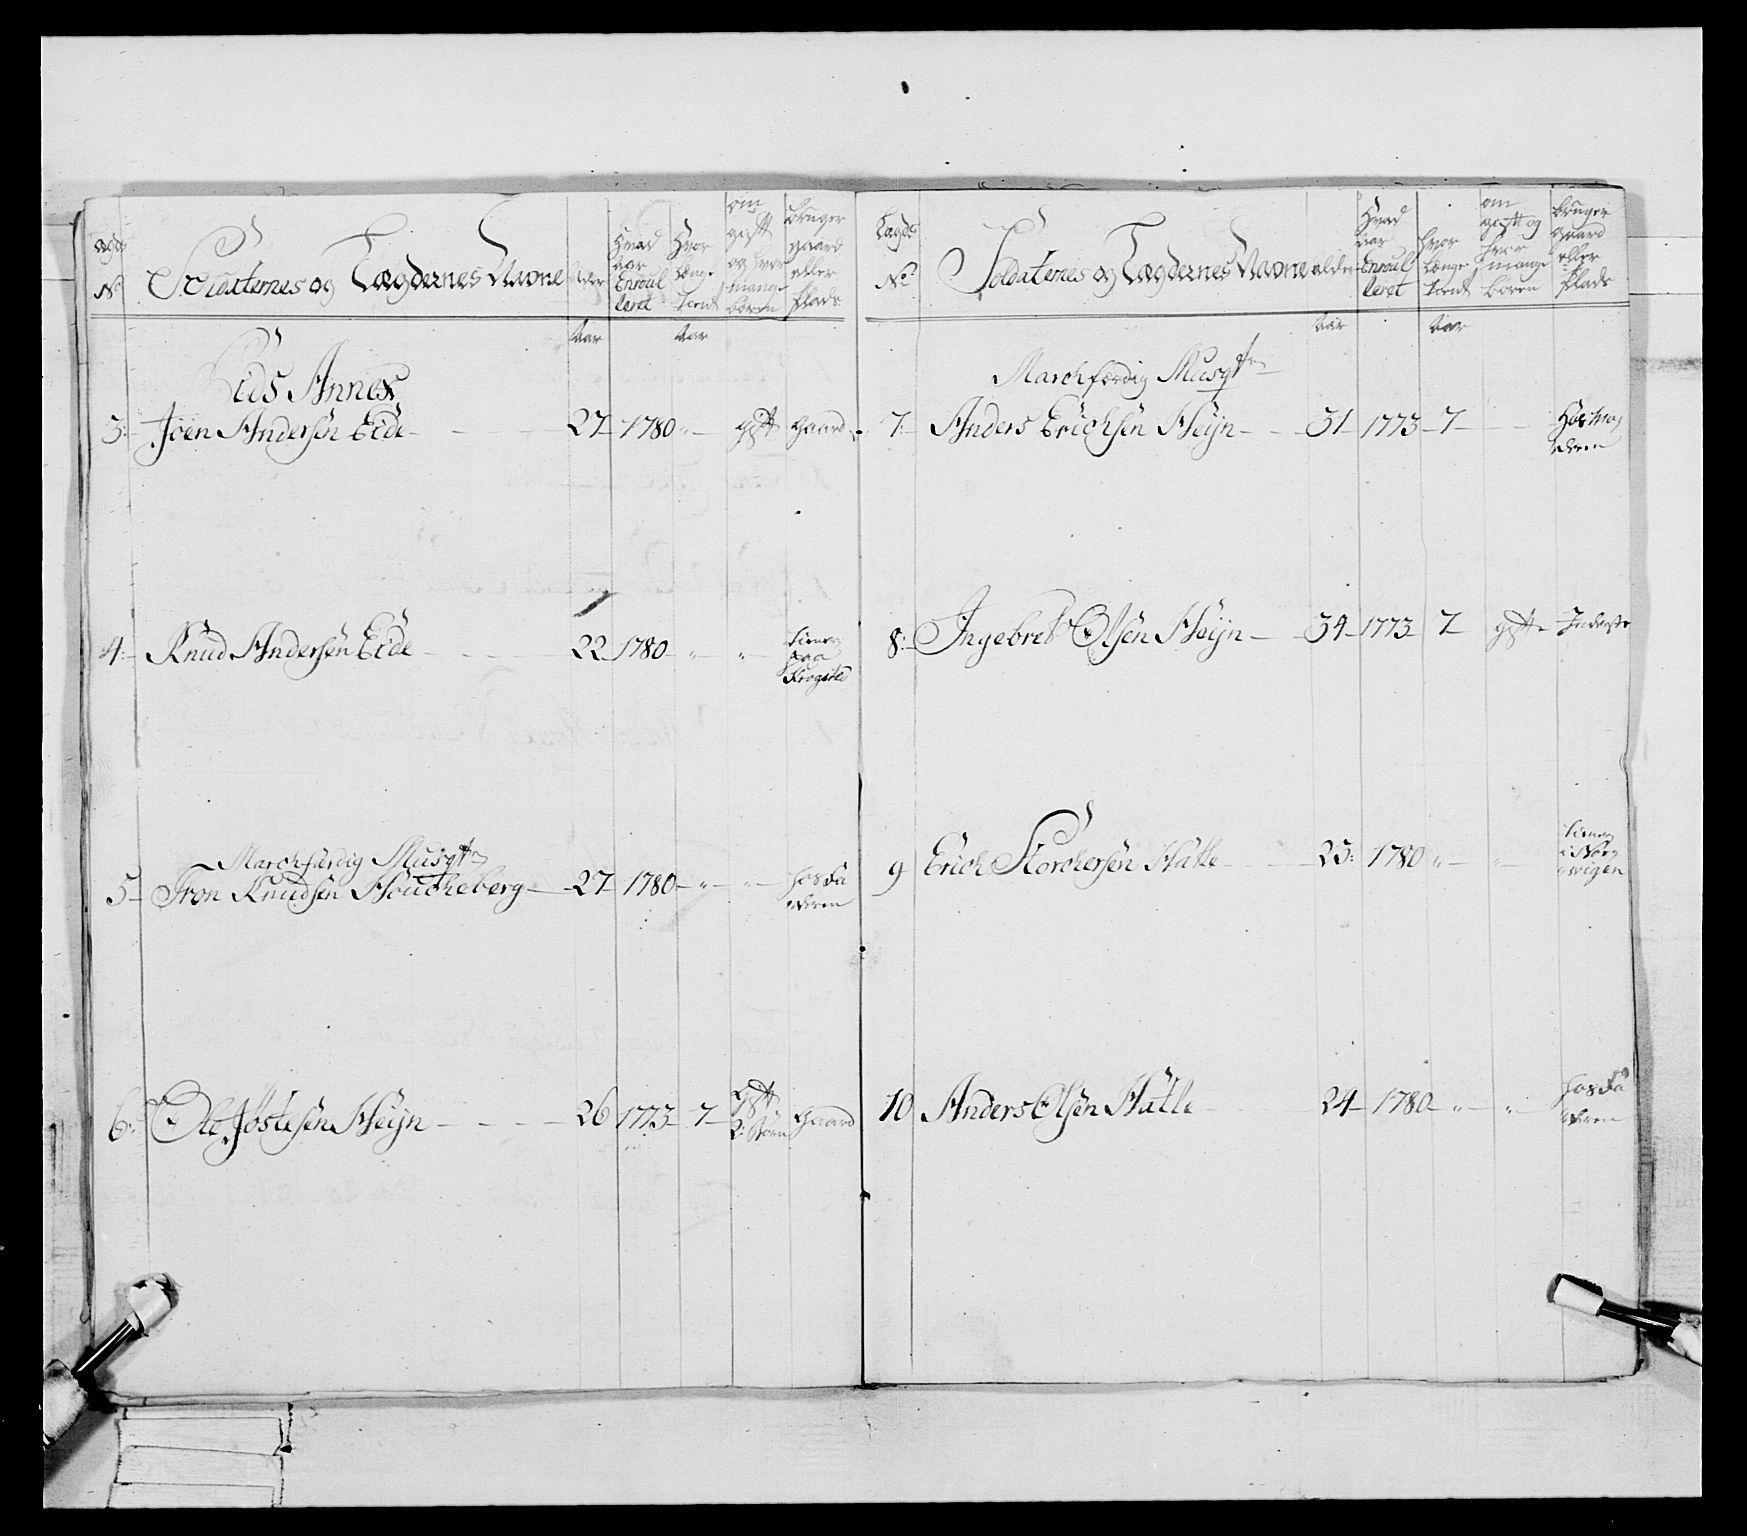 Lægde No
Soldaternes og Lægdernes Navne
Alder
Hvad Aar Enroulleret
Hvor længe tient
om gift og hvor mange børn
bruger gaard eller Plads
Aar Aar
Eids Annex
3. Joen Andersen Eide 27 1780 " gift gaard
4. Knud Andersen Eide 22 1780 " " tiener paa Frogsted
Marchfærdig Musqtr
5 Tron Knudsen Houcheberg 27 1780 " " hos Faderen
6. Ole Jostesen Heijn 26 1773 7 gift 2: Børn gaard
Lægde No
Soldaternes og Lægdernes Navne
alder
Hvad Aar Enroulleret
Hvor længe tient
om gift og hvor mange børn
bruger gaard eller Plads
Aar Aar
Marchfærdig Musqtr
7. Anders Erichsen Heijn 31 1773 7 Hos Moderen
8. Ingebret Olsen Heijn 34 1773 7 gift Inderste
9 Erich Storchersen Hatle 25: 1780 " " tiener i
10 Anders Olsen Hatle 24 1780 " " hos Faderen